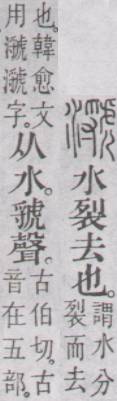 㶁水裂去也。謂水分
裂而去
也。韓愈文
用㶁㶁字。从水。虢聲。古伯切。古
音在五部。